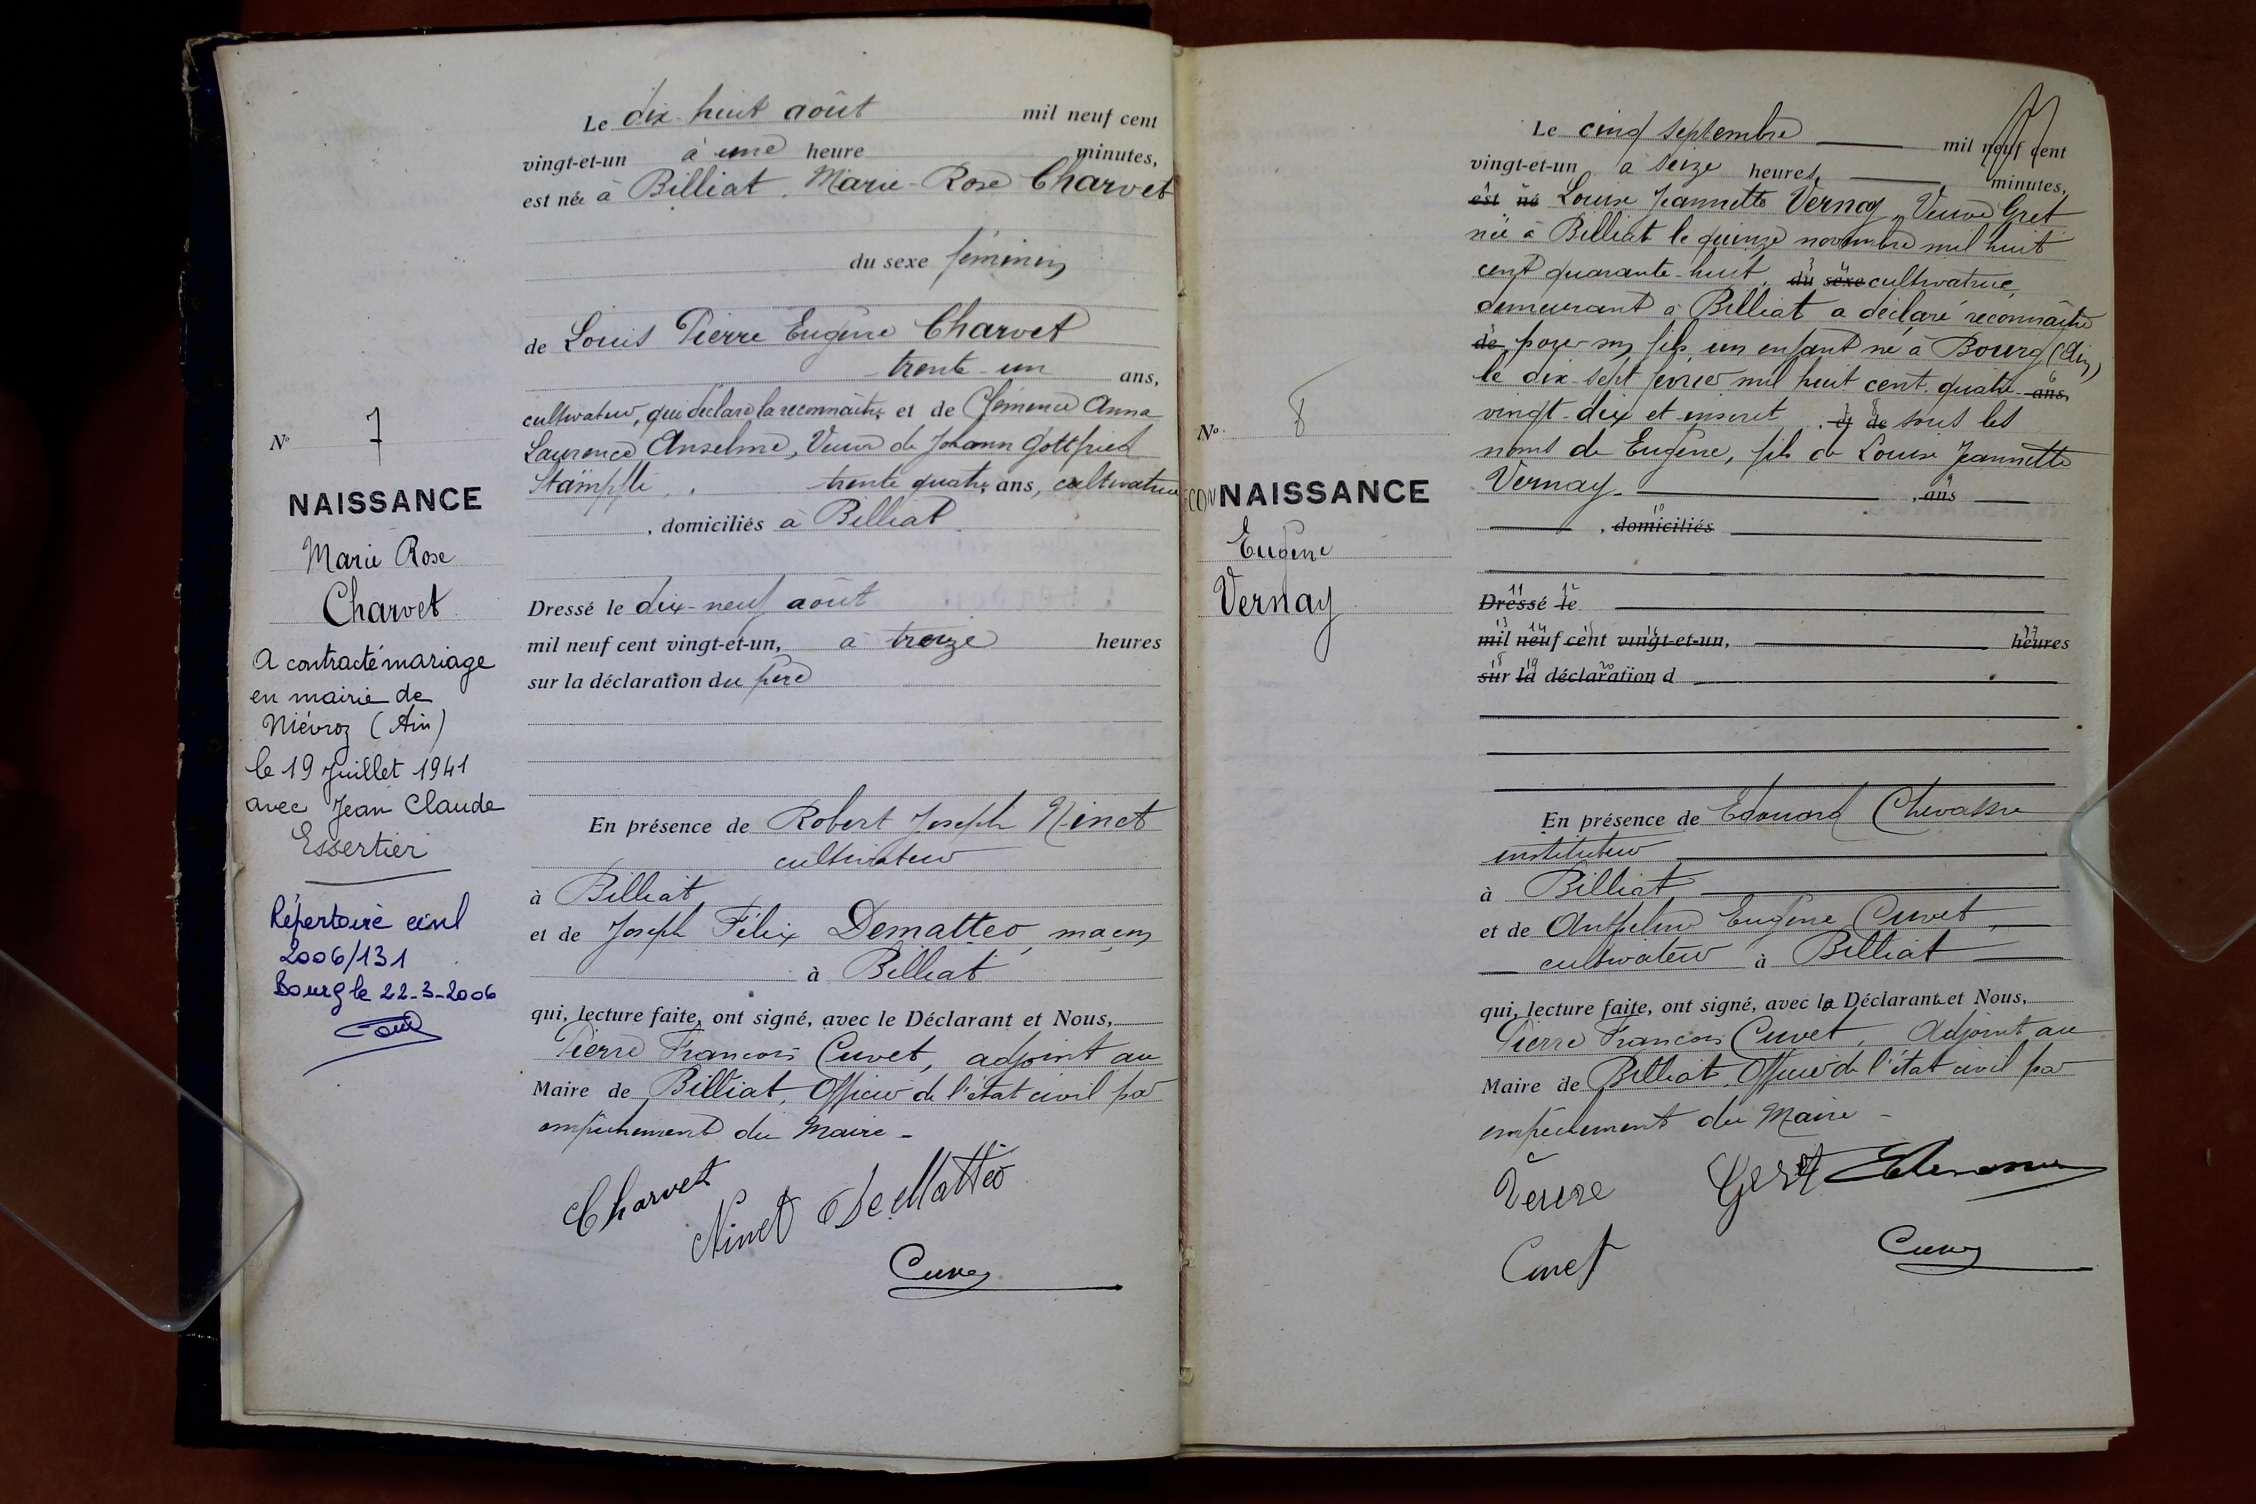 Le dix-huit août mil neuf cent
vingt-et-un à une heure minutes,
est née à Billiat, Marie-Rose Charvet
du sexe féminin
de Louis Pierre Eugène Charvet
trente-un ans,
cultivateur, qui déclare la reconnaître, et de Clémence Anna
Laurence Anselme, Veuve de Johann Gottfried
Stämpfli, trente quatre ans, cultivatrice
, domiciliés à Billiat
Dressé le dix-neuf août
mil neuf cent vingt-et-un, à treize heures
sur la déclaration du père
En présence de Robert Joseph Ninet
cultivateur
à Billiat
et de Joseph Félix Dematteo, maçon
à Billiat
qui, lecture faite, ont signé, avec le Déclarant et Nous,
Pierre François Cuvet, adjoint au
Maire de Billiat, Officier de l'état civil par
empêchement du Maire -
Charvet
Ninet DeMattéo
Cuvet
No 7
NAISSANCE
Marie Rose
Charvet
A contracté mariage
en mairie de
Niévroz (Ain)
le 19 Juillet 1941
avec Jean Claude
Essertier
Répertoire civil
2006/131
Bourg le 22-3-2006
Le cinq septembre mil neuf cent
vingt-et-un à seize heures, minutes,
est né Louise Jeannette Vernay, Veuve Gret
née à Billiat le quinze novembre mil huit
cent quarante-huit, du sexe cultivatrice,
demeurant à Billiat a déclaré reconnaître
de pour son fils, un enfant né à Bourg (Ain)
le dix-sept février mil huit cent quatre- ans,
vingt-dix et inscrit , d de sous les
noms de Eugène, fils de Louise Jeannette
Vernay. , ans
, domiciliés
Dressé le
mil neuf cent vingt-et-un, heures
sur la déclaration d
En présence de Edouard Chevassu
instituteur
à Billiat
et de Anthelme Eugène Cuvet,
cultivateur à Billiat
qui, lecture faite, ont signé, avec la Déclarante et Nous,
Pierre François Cuvet, Adjoint au
Maire de Billiat, Officier de l'état civil par
empêchement du Maire -
Gret
Cuvet Cuvet
No 8
RECONNAISSANCE
Eugène
Vernay